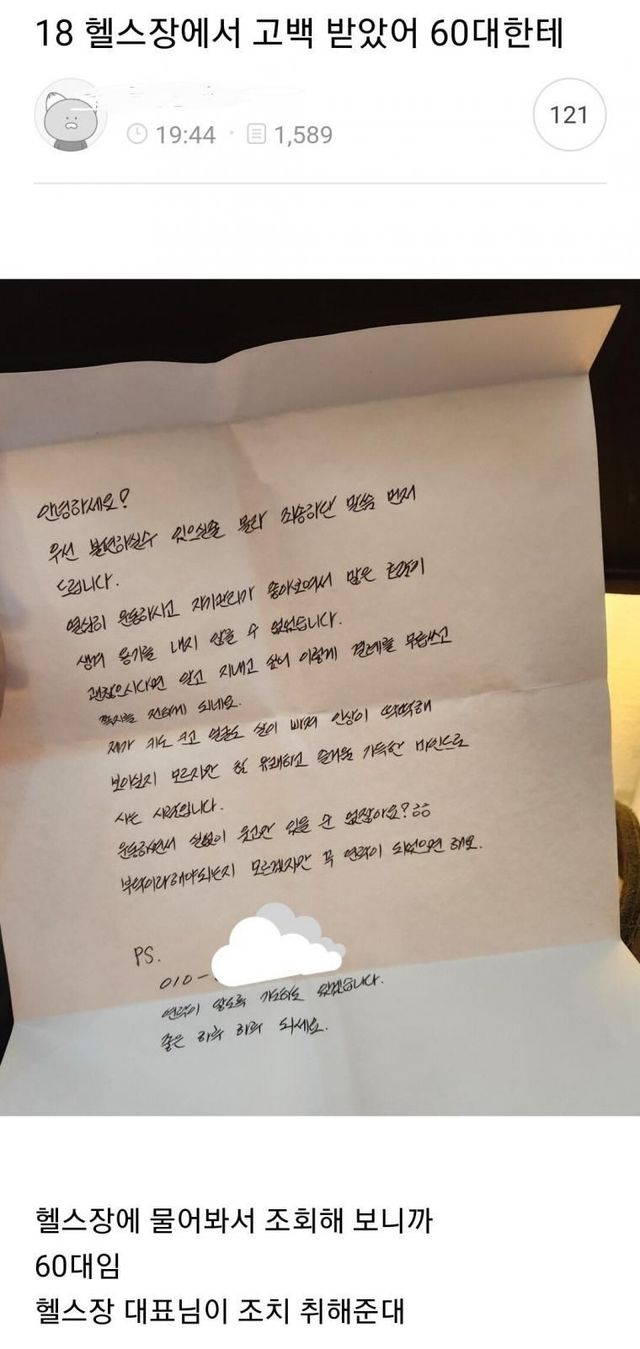 18 헬스장에서 고백 받았어 60대한테
19:44 · 1,589
121
안녕하세요?
우선 불편하실수 있으실을 몰라 죄송하단 말씀 먼저
드립니다.
열심히 운동하시고 자기관리가 좋아보여서 많은
생겨 용기를 내지 않을 수 없었습니다.
괜찮으시다면 알고 지내고 싶어 이렇게 결례를 무릅쓰고
쪽지를 전하게 되네요.
제가 키도 크고 얼굴도 살이 빠져 인상이 딱딱해
보이실지 모르지만 참 유쾌하고 즐거움 가득한 마인드로
사는 사람입니다.
운동하면서 실없이 웃고만 있을 순 없잖아요? ㅎㅎ
부탁이라해야되는지 모르겠지만 꼭 연락이 되었으면 해요.
PS.
010-
연락이 않도록 기도하고 있겠습니다.
좋은 하루 하루 되세요.
헬스장에 물어봐서 조회해 보니까
60대임
헬스장 대표님이 조치 취해준대